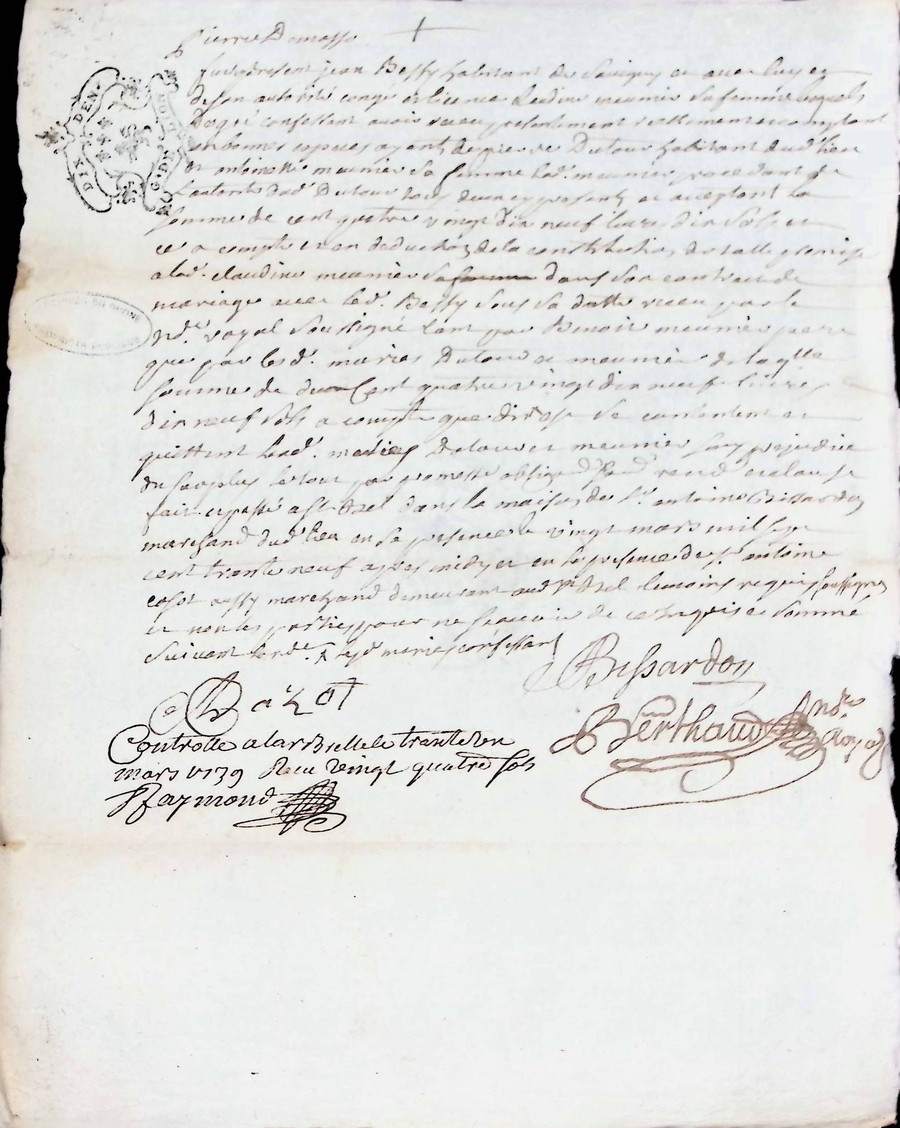 Pierre Demasse
fut present jean Bessy habitant de Savigny et avec luy et
de son autorité congé et licence claudine meunier sa femme lesquels
de gré confessent avoir receu presentement reellement et comptant
en bonnes especes ayant de pierre Dutour habitant dud. lieu
et antoinette meunier sa femme lad. meunier procedant de
l'autorité dud. Dutour tous deux cy presents et acceptant la
somme de cent quatre vingt dix neuf livres dix sols et
ce a compte et en deduction de la constitution dotalle promise
a lad. claudine meunier sa femme dans son contrat de
mariage avec led. Bessy sous sa datte receu par le
nore royal soussigné tant par Benoit meunier pere
que par lesd. mariés Dutour et meunier de laqlle
somme de cent quatre vingt dix neuf livres
dix neuf sols a compte que dit est se contentent et
quittent lesd. mariés Dutour et meunier sans prejudice
du surplus le tout par promesse oblige
fait et passé a St. Bel dans la maison de Sr. antoine Bissardon
marchand dud. lieu en sa presence le vingt mars mil sept
cent trente neuf apres midy et en la presence de Sr. antoine
cosot aussy marchand demeurant aud. St. Bel temoins requis soussignés
et non les parties pour ne scavoir de ce enquis et sommé
suivant lord. lesd. mariés confessants
Bissardon
Berthaud nore royal
Controllé a larbresle le trente un
mars 1739 Receu vingt quatre sols
Raymond
DIX DEN.